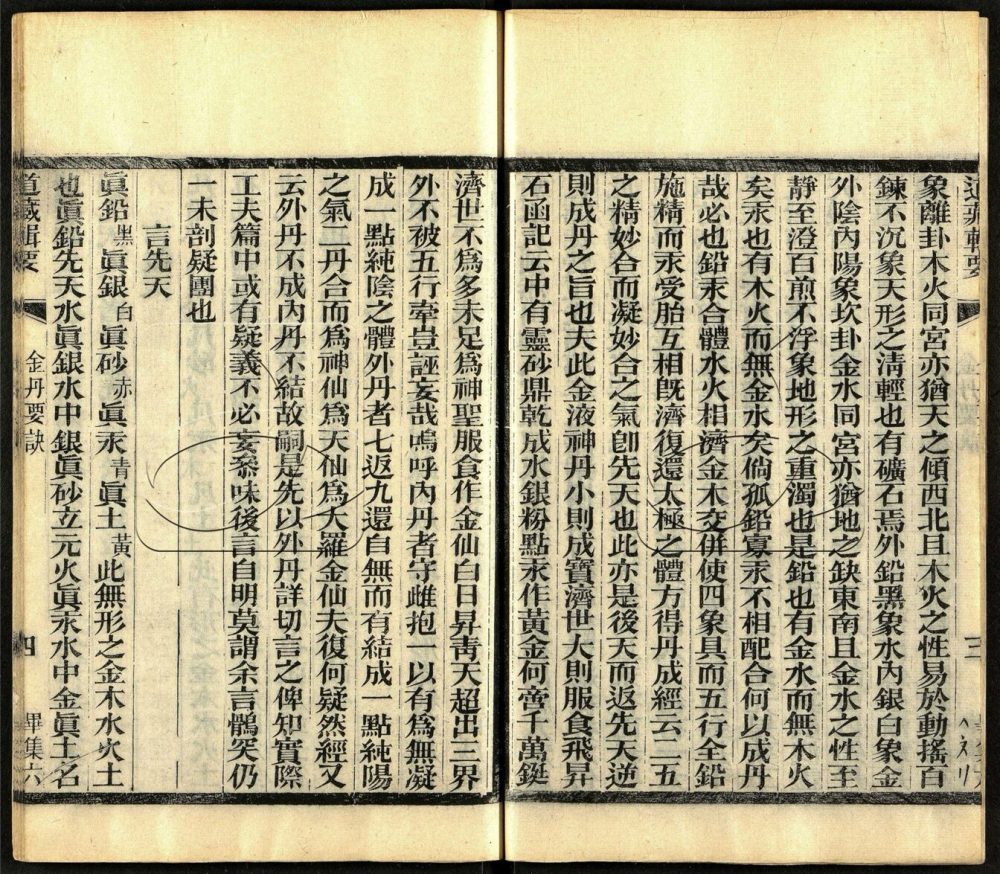 象離卦木火同宮亦猶天之傾西北且木火之性易於動搖百
鍊不沉象天形之淸輕也有礦石焉外鉛黑象水內銀白象金
外陰內陽象坎卦金水同宮亦猶地之缺東南且金水之性至
靜至澄百煎不浮象地形之重濁也是鉛也有金水而無木火
矣汞也有木火而無金水矣倘孤鉛寡汞不相配合何以成丹
哉必也鉛汞合體水火相濟金木交併使四象具而五行全鉛
施精而汞受胎互相旣濟復還太極之體方得丹成經云二五
之精妙合而凝妙合之氣卽先天也此亦是後天而返先天逆
則成丹之旨也夫此金液神丹小則成寶濟世大則服食飛昇
石函記云中有靈砂鼎乾成水銀粉點汞作黃金何啻千萬鋌
濟世不爲多未足爲神聖服食作金仙白日昇靑天超出三界
外不被五行牽豈誣妄哉嗚呼內丹者守雌抱一以有爲無凝
成一點純陰之體外丹者七返九還自無而有結成一點純陽
之氣二丹合而爲神仙爲天仙爲大羅金仙夫復何疑然經又
云外丹不成內丹不結故嗣是先以外丹詳切言之俾知實際
工夫篇中或有疑義不必妄叅味後言自明莫謂余言鶻突仍
一未剖疑團也
言先天
眞鉛黑眞銀白眞砂赤眞汞靑眞土黃此無形之金木水火土
也眞鉛先天水眞銀水中銀眞砂立元火眞汞水中金眞土名
道藏輯要
金丹要訣
四
畢集六